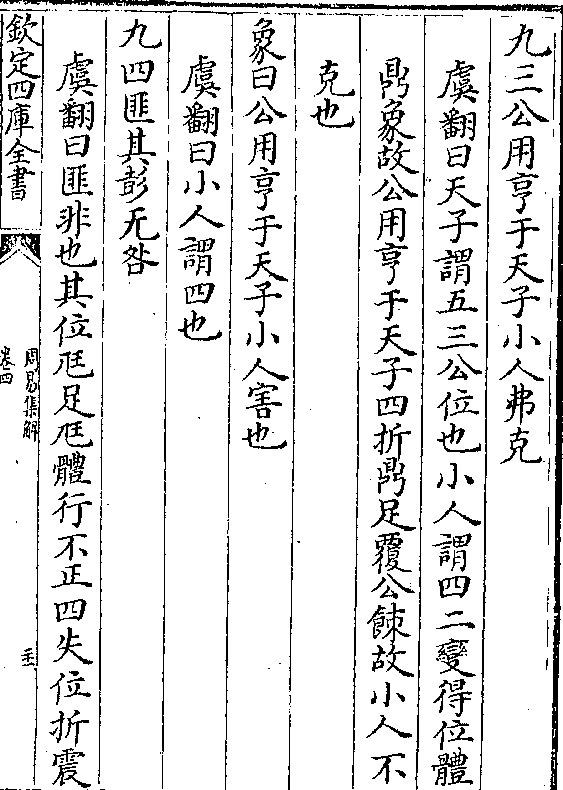 九三公用亨于天子小人弗克
虞翻曰天子謂五三公位也小人謂四二變得位體
鼎象故公用亨于天子四折鼎足覆公餗故小人不
克也
象曰公用亨于天子小人害也
虞翻曰小人謂四也
九四匪其彭无咎
虞翻曰匪非也其位尫足尫體行不正四失位折震
欽定四庫全書
周易集解
卷四